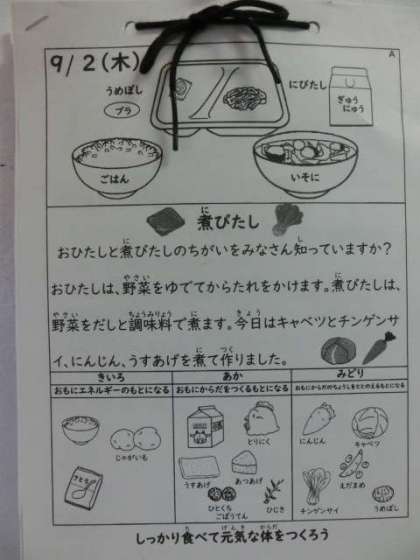 9/2(木)
A
うめぼし
プラ
にびたし
ぎゅうにゅう
ごはん
いそに
煮びたし
おひたしと煮びたしのちがいをみなさん知っていますか?
おひたしは、野菜をゆでてからたれをかけます。煮びたしは、
野菜をだしと調味料で煮ます。今日はキャベツとチンゲンサ
イ、にんじん、うすあげを煮て作りました。
きいろ
あか
みどり
おもにエネルギーのもとになる
おもにからだをつくるもとになる
おもにからだのちょうしをととのえるもとになる
じゃがいも
さとう
とりにく
うすあげ
あつあげ
ひとくちごぼうてん
ひじき
にんじん
キャベツ
えだまめ
チンゲンサイ
うめぼし
しっかり食べて元気な体をつくろう